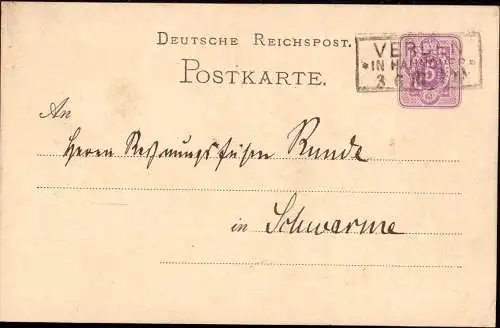 DEUTSCHE REICHSPOST.
VERDEN
*IN HANNOVER*
5
POSTKARTE.
An
Herrn Rechnungsführer Runde
in Schwarme